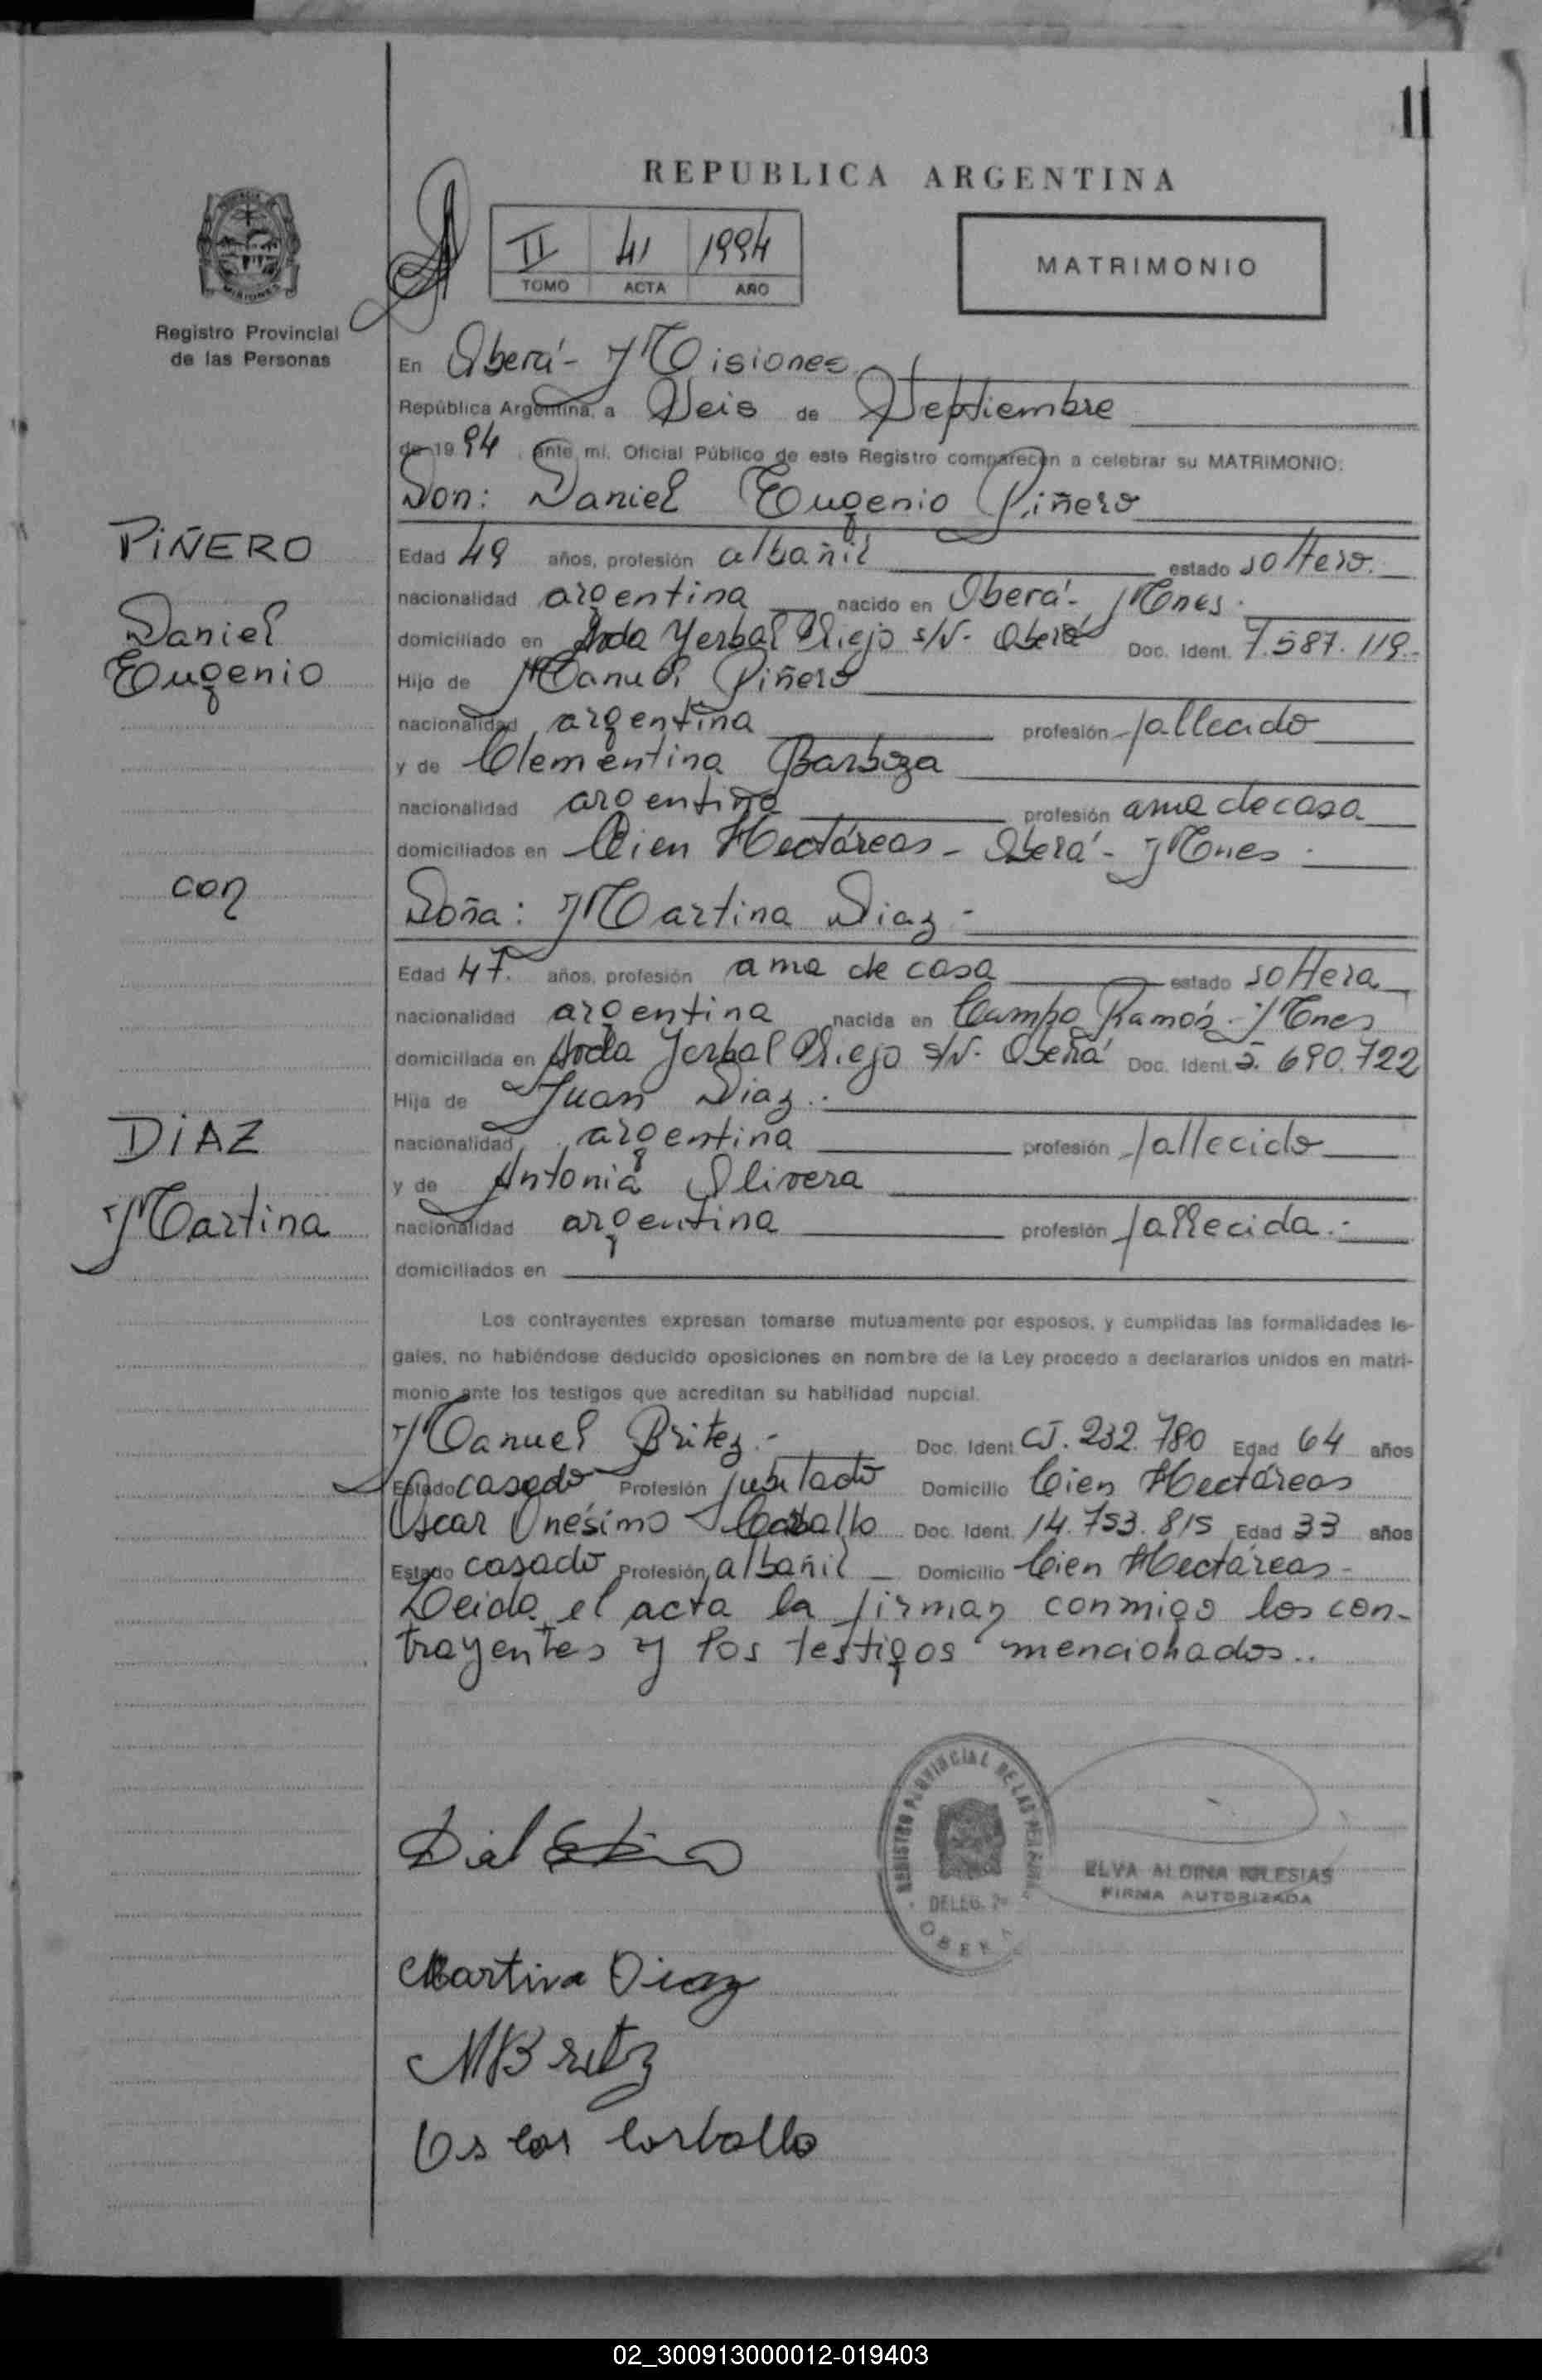 11
REPUBLICA ARGENTINA
II 41 1994
TOMO ACTA AÑO
MATRIMONIO
MISIONES
Registro Provincial
de las Personas
En Oberá - Misiones
República Argentina, a Seis de Septiembre
de 19 94, ante mí, Oficial Público de este Registro comparecen a celebrar su MATRIMONIO:
Don: Daniel Eugenio Piñero
PIÑERO
Edad 49 años, profesión albañil estado soltero.
nacionalidad argentina nacido en Oberá - Mnes.
Daniel
domiciliado en Avda Yerbal Viejo s/N - Oberá Doc. Ident. 7.587.119.-
Eugenio
Hijo de Manuel Piñero
nacionalidad argentina profesión fallecido
y de Clementina Barboza
nacionalidad argentina profesión ama de casa
domiciliados en Cien Hectáreas - Oberá - Mnes.
con
Doña: Martina Diaz -
Edad 47. años, profesión ama de casa estado soltera
nacionalidad argentina nacida en Campo Ramón - Mnes
domiciliada en Avda Yerbal Viejo s/N - Oberá Doc. Ident. 5.690.722
Hija de Juan Diaz.-
DIAZ
nacionalidad argentina profesión fallecido
y de Antonia Olivera
Martina
nacionalidad argentina profesión fallecida.-
domiciliados en
Los contrayentes expresan tomarse mutuamente por esposos, y cumplidas las formalidades le-
gales, no habiéndose deducido oposiciones en nombre de la Ley procedo a declararlos unidos en matri-
monio ante los testigos que acreditan su habilidad nupcial.
Manuel Britez.- Doc. Ident. CI. 232.780 Edad 64 años
Estado casado Profesión jubilado Domicilio Cien Hectáreas
Oscar Onésimo Carballo Doc. Ident. 14.753.815 Edad 33 años
Estado casado Profesión albañil - Domicilio Cien Hectáreas -
Leida el acta la firman conmigo los con-
trayentes y los testigos mencionados..
REGISTRO PROVINCIAL DE LAS PERSONAS
DELEG. 2ª
OBERA
ELVA ALDINA IGLESIAS
FIRMA AUTORIZADA
Martina Diaz
M Britez
Oscar Carballo
02_300913000012-019403